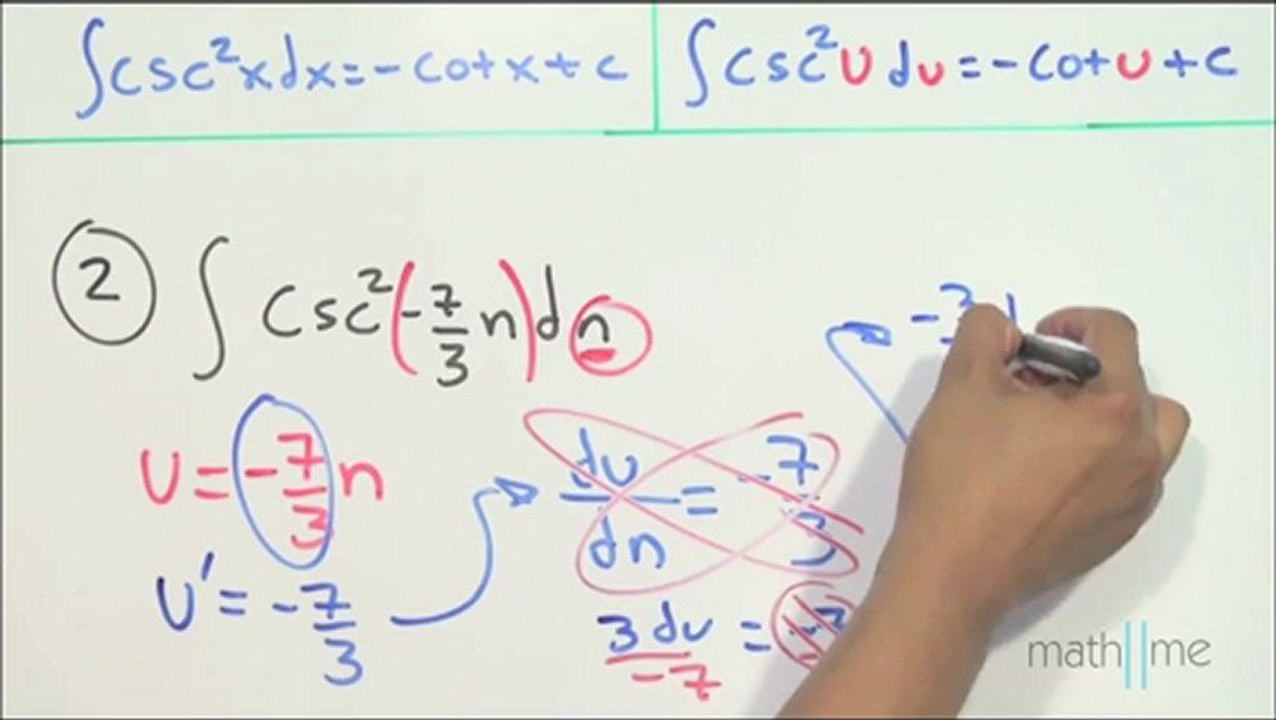 ∫csc²x dx = -cot x + c
∫csc²u du = -cot u + c
2 ∫ csc²(-7/3 n) dn
-3
u = -7/3 n
du/dn = -7/3
u' = -7/3
3du/-7 =
math||me